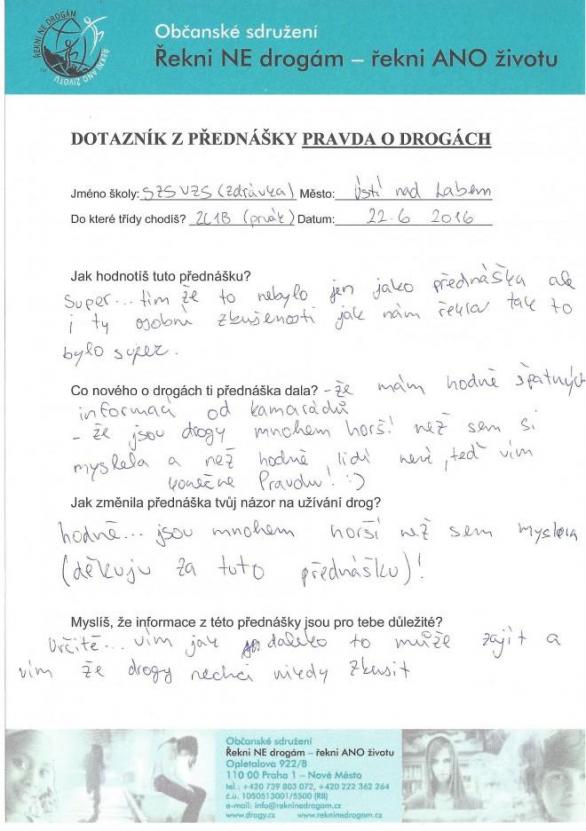 ŘEKNI NE DROGÁM
ŘEKNI ANO ŽIVOTU
Občanské sdružení
Řekni NE drogám – řekni ANO životu
DOTAZNÍK Z PŘEDNÁŠKY PRAVDA O DROGÁCH
Jméno školy: SZŠ VZŠ (zdrávka) Město: Ústí nad Labem
Do které třídy chodíš? ZL1B (prvák) Datum: 22.6 2016
Jak hodnotíš tuto přednášku?
Super... tím že to nebylo jen jako přednáška ale
i ty osobní zkušenosti jak nám řekla tak to
bylo super.
Co nového o drogách ti přednáška dala? - že mám hodně špatných
informací od kamarádů
- že jsou drogy mnohem horší než sem si
myslela a než hodně lidí neví, teď vím
konečně Pravdu! :)
Jak změnila přednáška tvůj názor na užívání drog?
hodně... jsou mnohem horší než sem myslela
(děkuju za tuto přednášku)!
Myslíš, že informace z této přednášky jsou pro tebe důležité?
Určitě... vím jak daleko to může zajít a
vím že drogy nechci nikdy zkusit
Občanské sdružení
Řekni NE drogám – řekni ANO životu
Opletalova 922/8
110 00 Praha 1 – Nové Město
tel.: +420 739 803 072, +420 222 362 264
č.ú. 1050513001/5500 (RB)
e-mail: info@rekninedrogam.cz
www.drogy.cz www.rekninedrogam.cz